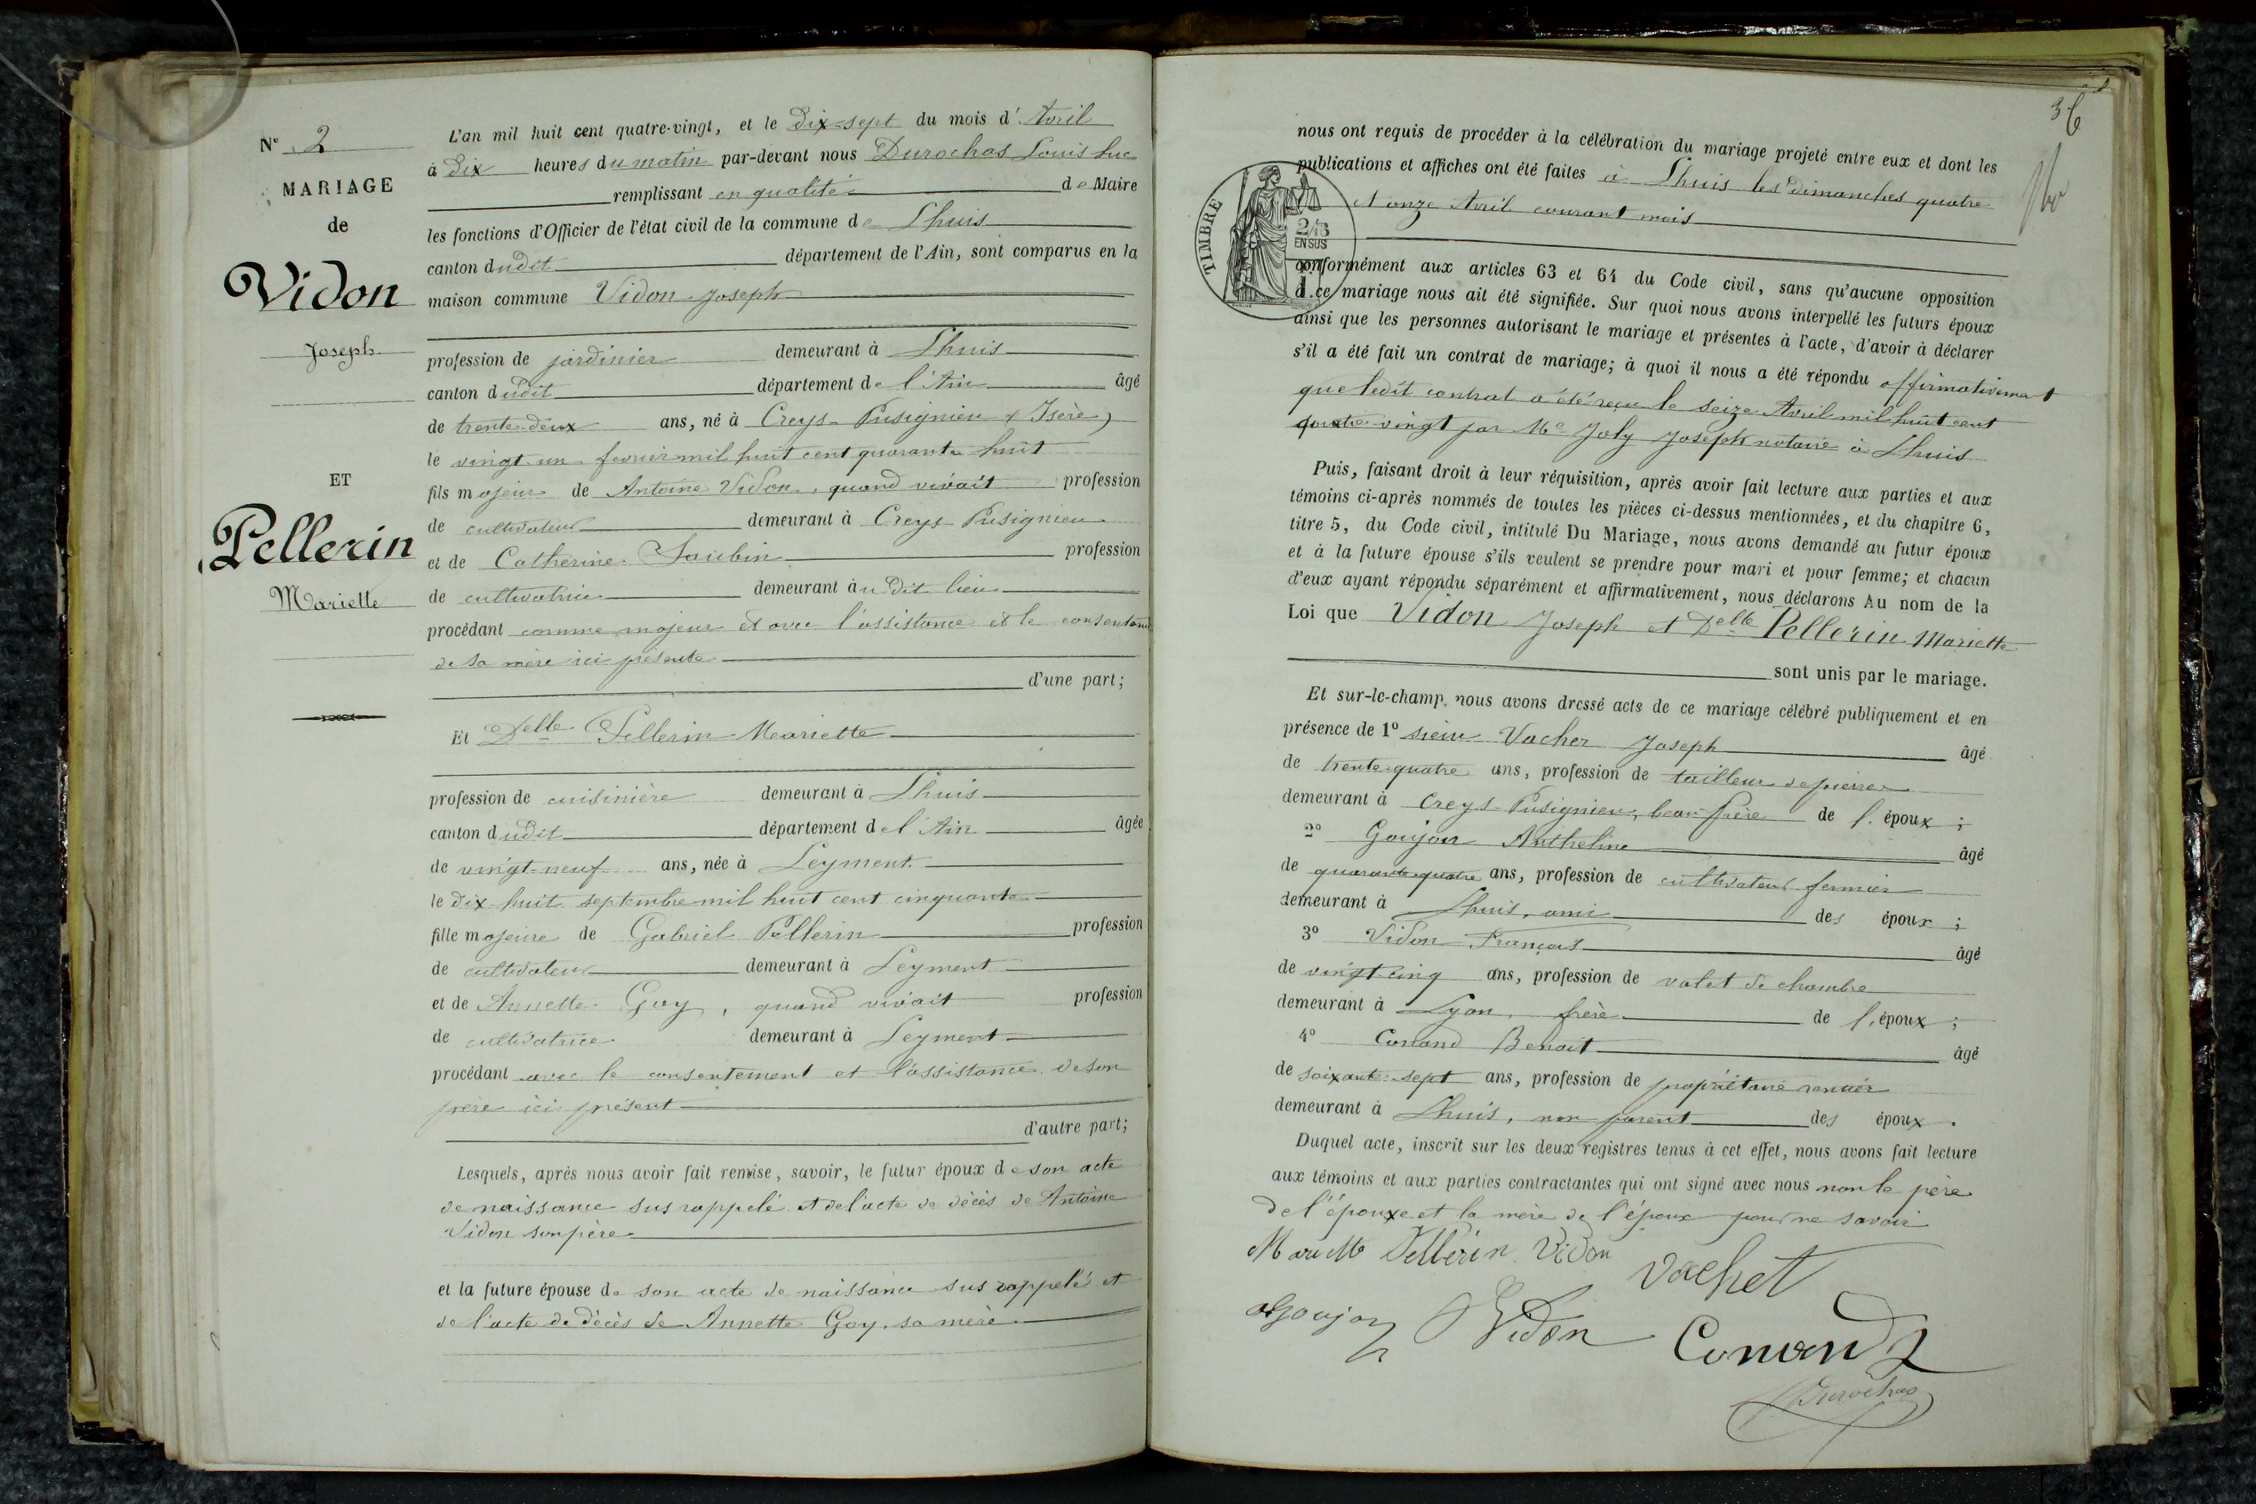 N° 2
MARIAGE
de
Vidon
Joseph
ET
Pellerin
Mariette
L'an mil huit cent quatre-vingt, et le Dix-sept du mois d'Avril
à Dix heures du matin par-devant nous Durochas Louis Luc
remplissant en qualité de Maire
les fonctions d'Officier de l'état civil de la commune de Lhuis
canton dudit département de l'Ain, sont comparus en la
maison commune Vidon Joseph
profession de jardinier demeurant à Lhuis
canton dudit département de l'Ain âgé
de trente-deux ans, né à Creys-Pusignieu (Isère)
le vingt-un fevrier mil huit cent quarante huit
fils majeur de Antoine Vidon, quand vivait profession
de cultivateur demeurant à Creys-Pusignieu
et de Catherine Saubin profession
de cultivatrice demeurant audit lieu
procédant comme majeur et avec l'assistance et le consentant
de sa mère ici présente
d'une part;
Et Delle Pellerin Mariette
profession de cuisinière demeurant à Lhuis
canton dudit département de l'Ain âgée
de vingt-neuf ans, née à Leyment
le dix-huit septembre mil huit cent cinquante
fille majeure de Gabriel Pellerin profession
de cultivateur demeurant à Leyment
et de Annette Goy, quand vivait profession
de cultivatrice demeurant à Leyment
procédant avec le consentement et l'assistance de son
père ici présent
d'autre part;
Lesquels, après nous avoir fait remise, savoir, le futur époux de son acte
de naissance sus rappelé et de l'acte de décès de Antoine
Vidon son père
et la future épouse de son acte de naissance sus rappelé et
de l'acte de décès de Annette Goy, sa mère
36
TIMBRE
2/10
EN SUS
nous ont requis de procéder à la célébration du mariage projeté entre eux et dont les
publications et affiches ont été faites à Lhuis les dimanches quatre
et onze Avril courant mois
conformément aux articles 63 et 64 du Code civil, sans qu'aucune opposition
à ce mariage nous ait été signifiée. Sur quoi nous avons interpellé les futurs époux
ainsi que les personnes autorisant le mariage et présentes à l'acte, d'avoir à déclarer
s'il a été fait un contrat de mariage; à quoi il nous a été répondu affirmativement
que ledit contrat a été reçu le seize Avril mil huit cent
quatre-vingt par Me Joly Joseph notaire à Lhuis
Puis, faisant droit à leur réquisition, après avoir fait lecture aux parties et aux
témoins ci-après nommés de toutes les pièces ci-dessus mentionnées, et du chapitre 6,
titre 5, du Code civil, intitulé Du Mariage, nous avons demandé au futur époux
et à la future épouse s'ils veulent se prendre pour mari et pour femme; et chacun
d'eux ayant répondu séparément et affirmativement, nous déclarons Au nom de la
Loi que Vidon Joseph et Delle Pellerin Mariette
sont unis par le mariage.
Et sur-le-champ, nous avons dressé acte de ce mariage célébré publiquement et en
présence de 1° sieur Vacher Joseph âgé
de trente-quatre ans, profession de tailleur de pierres
demeurant à Creys-Pusignieu, beau-frère de l'époux;
2° Goujon Anthelme âgé
de quarante-quatre ans, profession de cultivateur fermier
demeurant à Lhuis, ami des époux;
3° Vidon François âgé
de vingt cinq ans, profession de valet de chambre
demeurant à Lyon, frère de l'époux;
4° Conand Benoit âgé
de soixante-sept ans, profession de propriétaire rentier
demeurant à Lhuis, non parent des époux.
Duquel acte, inscrit sur les deux registres tenus à cet effet, nous avons fait lecture
aux témoins et aux parties contractantes qui ont signé avec nous non le père
de l'épouxe et la mère de l'époux pour ne savoir
Mariette Pellerin Vidon
Vachet
Goujon Vidon
Conand
Durochas